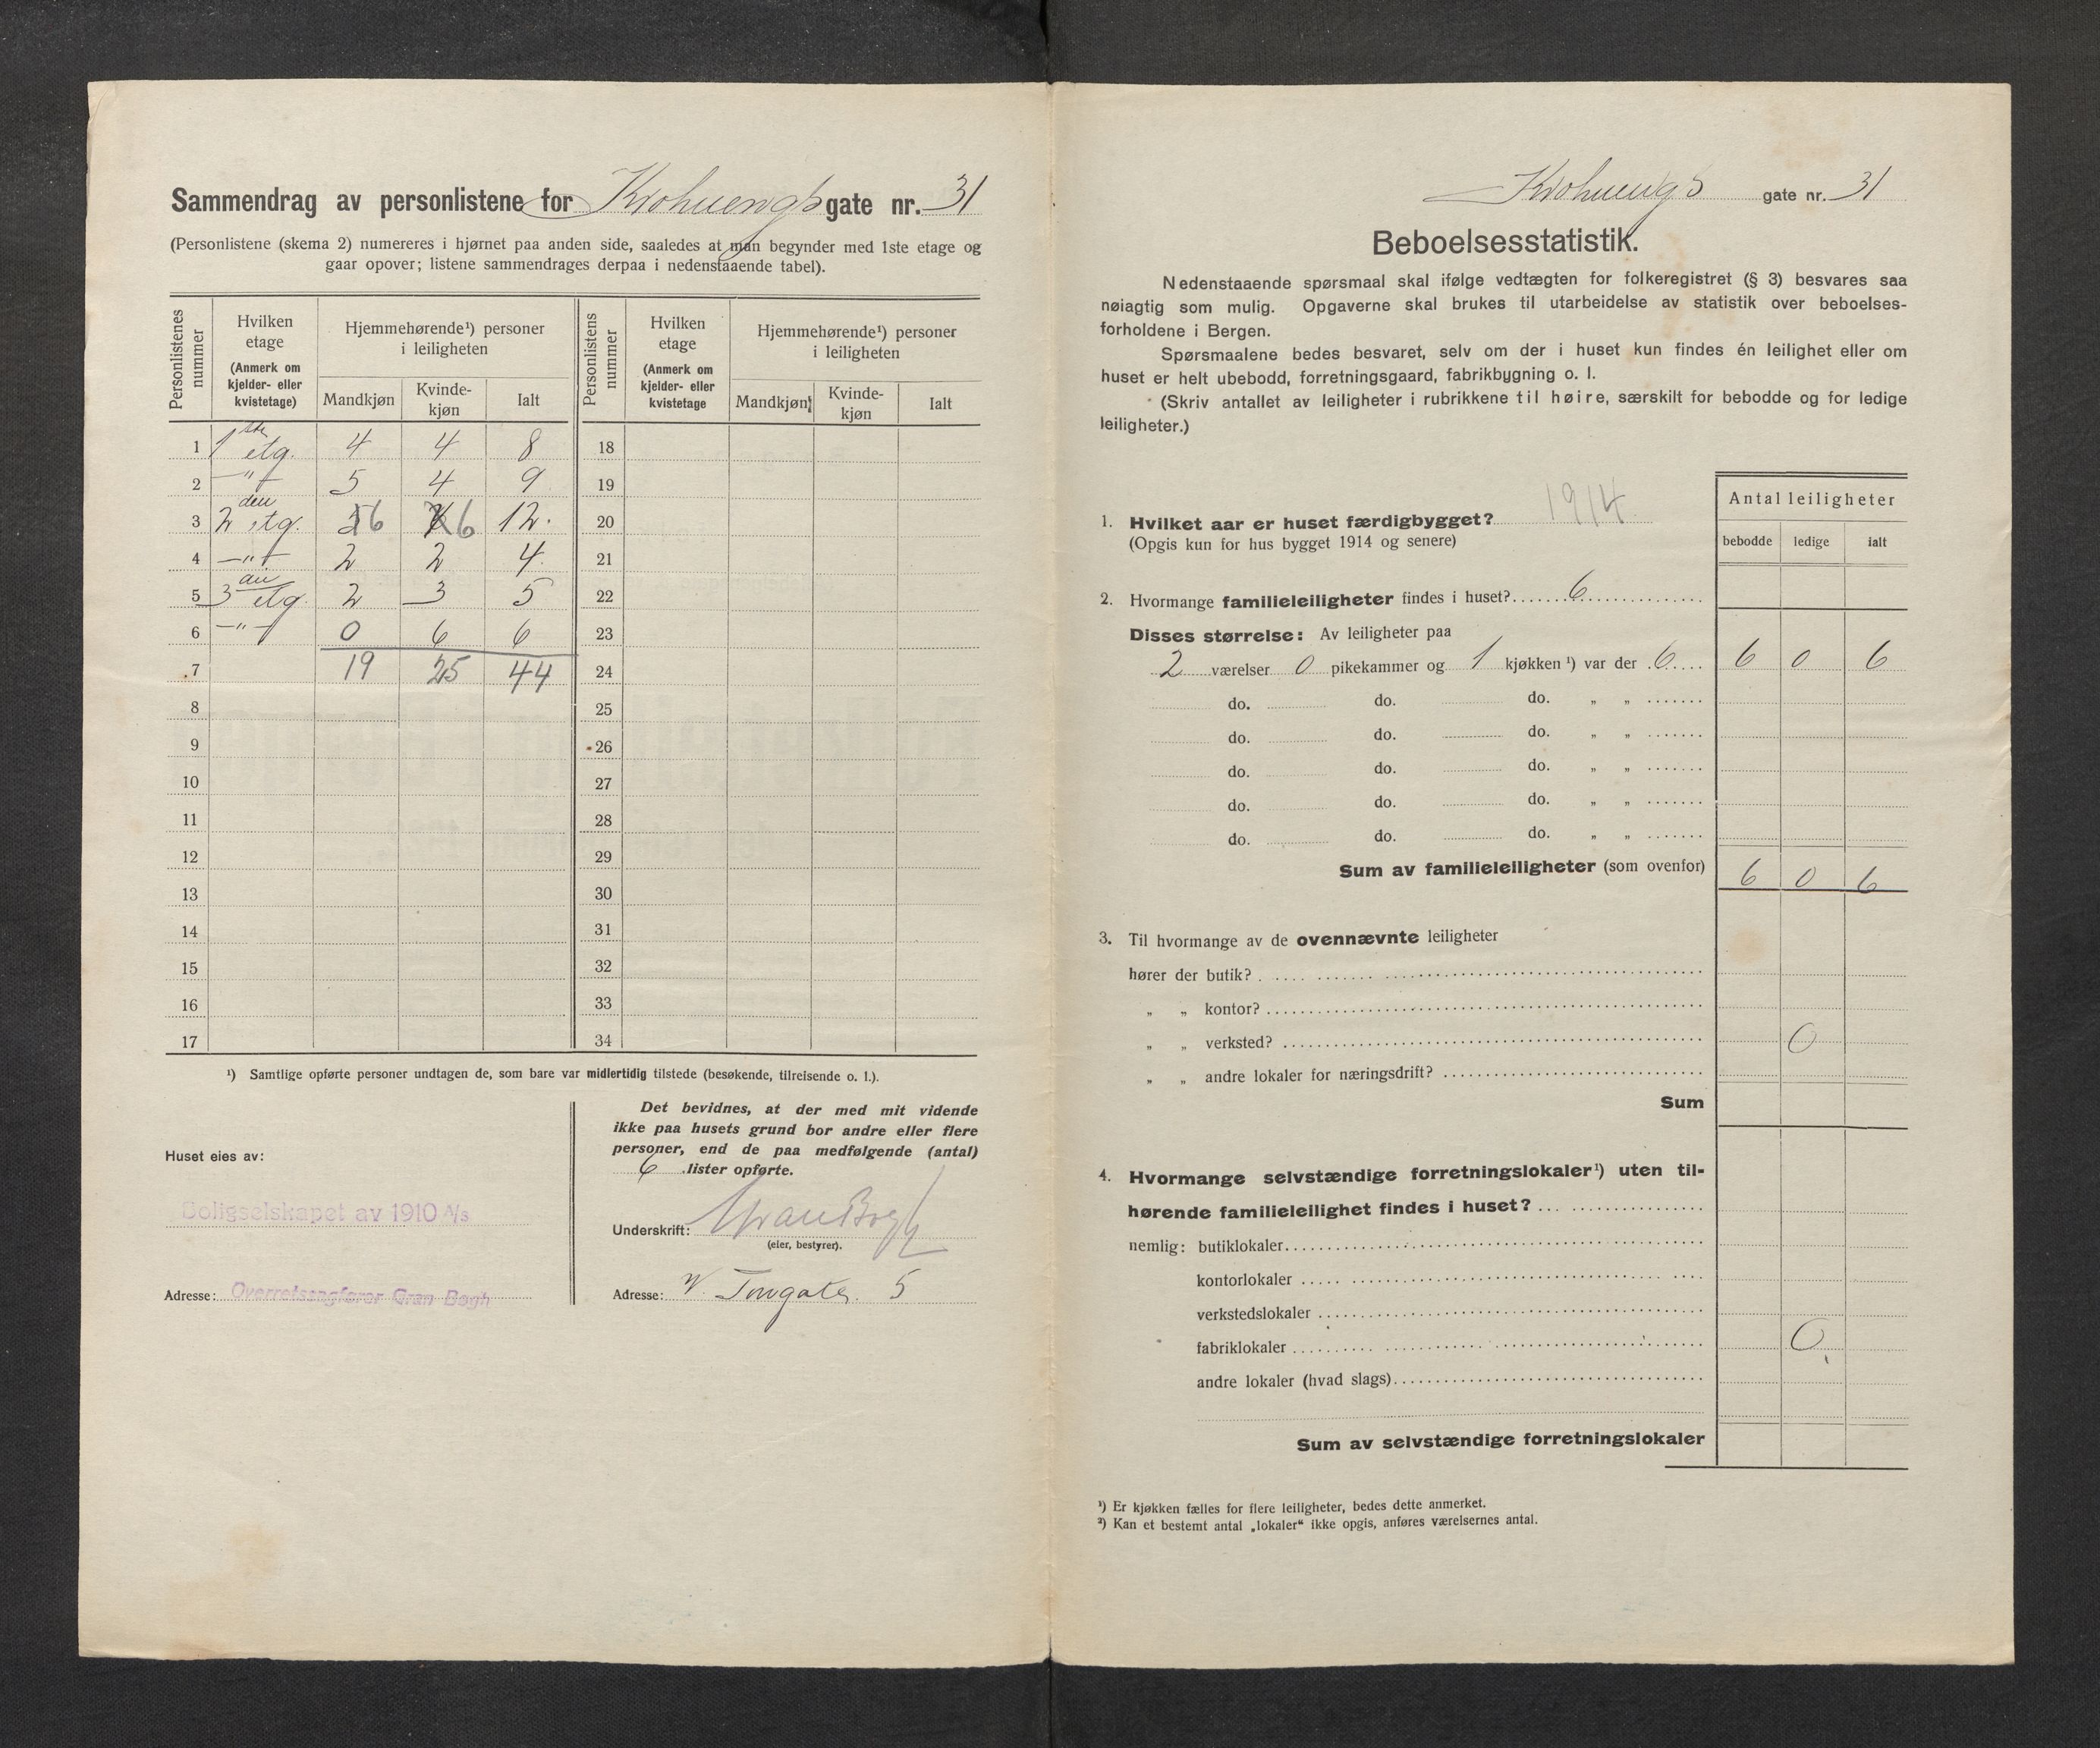 Sammendrag av personlistene for Krohnengs gate nr. 31
(Personlistene (skema 2) numereres i hjørnet paa anden side, saaledes at man begynder med 1ste etage og
gaar opover; listene sammendrages derpaa i nedenstaaende tabel).
Personlistenes nummer
Hvilken etage
(Anmerk om kjelder- eller kvistetage)
Hjemmehørende¹) personer i leiligheten
Mandkjøn Kvinde-kjøn Ialt
Personlistens nummer
Hvilken etage
(Anmerk om kjelder- eller kvistetage
Hjemmehørende¹) personer i leiligheten
Mandkjøn Kvinde-kjøn Ialt
1 1ste etg. 4 4 8 18
2 —"— 5 4 9 19
3 2den etg. 6 6 12. 20
4 —"— 2 2 4 21
5 3die etg. 2 3 5 22
6 —"— 0 6 6 23
7 19 25 44 24
8 25
9 26
10 27
11 28
12 29
13 30
14 31
15 32
16 33
17 34
¹) Samtlige opførte personer undtagen de, som bare var midlertidig tilstede (besøkende, tilreisende o. l.).
Huset eies av:
Boligselskapet av 1910 A/s
Adresse: Overretssagfører Gran Bøgh
Det bevidnes, at der med mit vidende
ikke paa husets grund bor andre eller flere
personer, end de paa medfølgende (antal)
6 lister opførte.
Underskrift: Gran Bøgh
(eier, bestyrer).
Adresse: V. Torvgate. 5
Krohnengs gate nr. 31
Beboelsesstatistik.
Nedenstaaende spørsmaal skal ifølge vedtægten for folkeregistret (§ 3) besvares saa
nøiagtig som mulig. Opgaverne skal brukes til utarbeidelse av statistik over beboelses-
forholdene i Bergen.
Spørsmaalene bedes besvaret, selv om der i huset kun findes én leilighet eller om
huset er helt ubebodd, forretningsgaard, fabrikbygning o. l.
(Skriv antallet av leiligheter i rubrikkene til høire, særskilt for bebodde og for ledige
leiligheter.)
Antal leiligheter
bebodde ledige ialt
1. Hvilket aar er huset færdigbygget? 1914
(Opgis kun for hus bygget 1914 og senere)
2. Hvormange familieleiligheter findes i huset? 6
Disses størrelse: Av leiligheter paa
2 værelser 0 pikekammer og 1 kjøkken ¹) var der 6 6 0 6
do. do. do. „ „
do. do. do. „ „
do. do. do. „ „
do. do. do. „ „
do. do. do. „ „
Sum av familieleiligheter (som ovenfor) 6 0 6
3. Til hvormange av de ovennævnte leiligheter
hører der butik?
„ „ kontor?
„ „ verksted? 0
„ „ andre lokaler for næringsdrift?
Sum
4. Hvormange selvstændige forretningslokaler¹) uten til-
hørende familieleilighet findes i huset?
nemlig: butiklokaler
kontorlokaler
verkstedslokaler
fabriklokaler 0
andre lokaler (hvad slags)
Sum av selvstændige forretningslokaler
¹) Er kjøkken fælles for flere leiligheter, bedes dette anmerket.
²) Kan et bestemt antal „lokaler“ ikke opgis, anføres værelsernes antal.